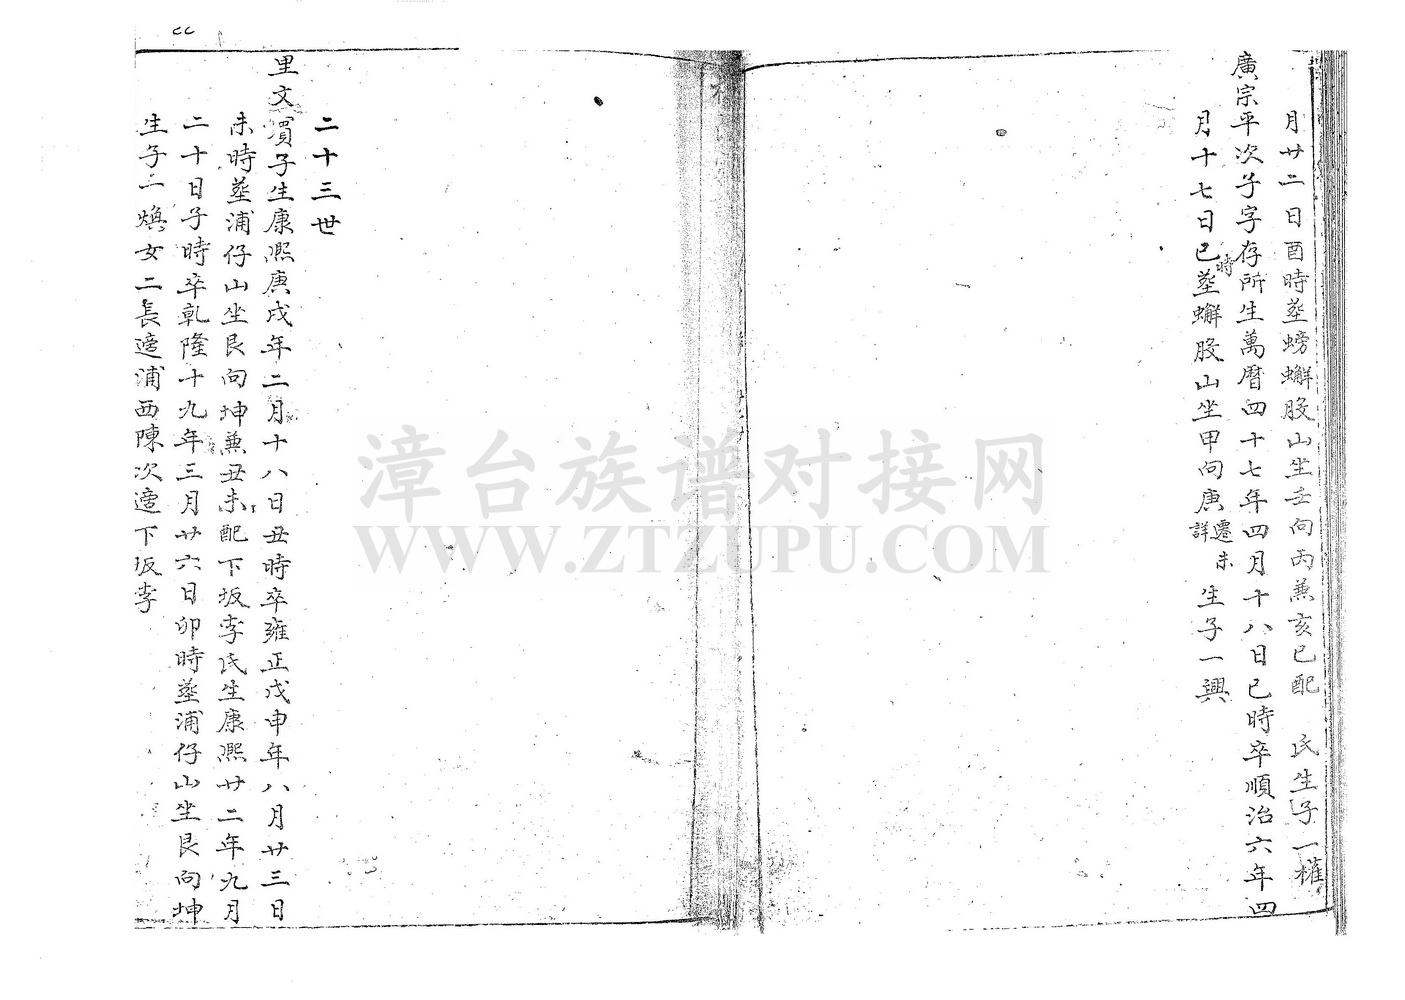 月廿二日酉時葬螃蠏股山坐壬向丙兼亥巳配　氏生子一權
廣宗平次子字存所生萬曆四十七年四月十八日巳時卒順治六年四
月十七日巳時葬蠏股山坐甲向庚遷未詳生子一興
二十三世
里文濱子生康熙庚戌年二月十八日丑時卒雍正戊申年八月廿三日
未時葬浦仔山坐艮向坤兼丑未配下坂李氏生康熙廿二年九月
二十日子時卒乾隆十九年三月廿六日卯時葬浦仔山坐艮向坤
生子一煥女二長適浦西陳次適下坂李
漳台族谱对接网
WWW.ZTZUPU.COM